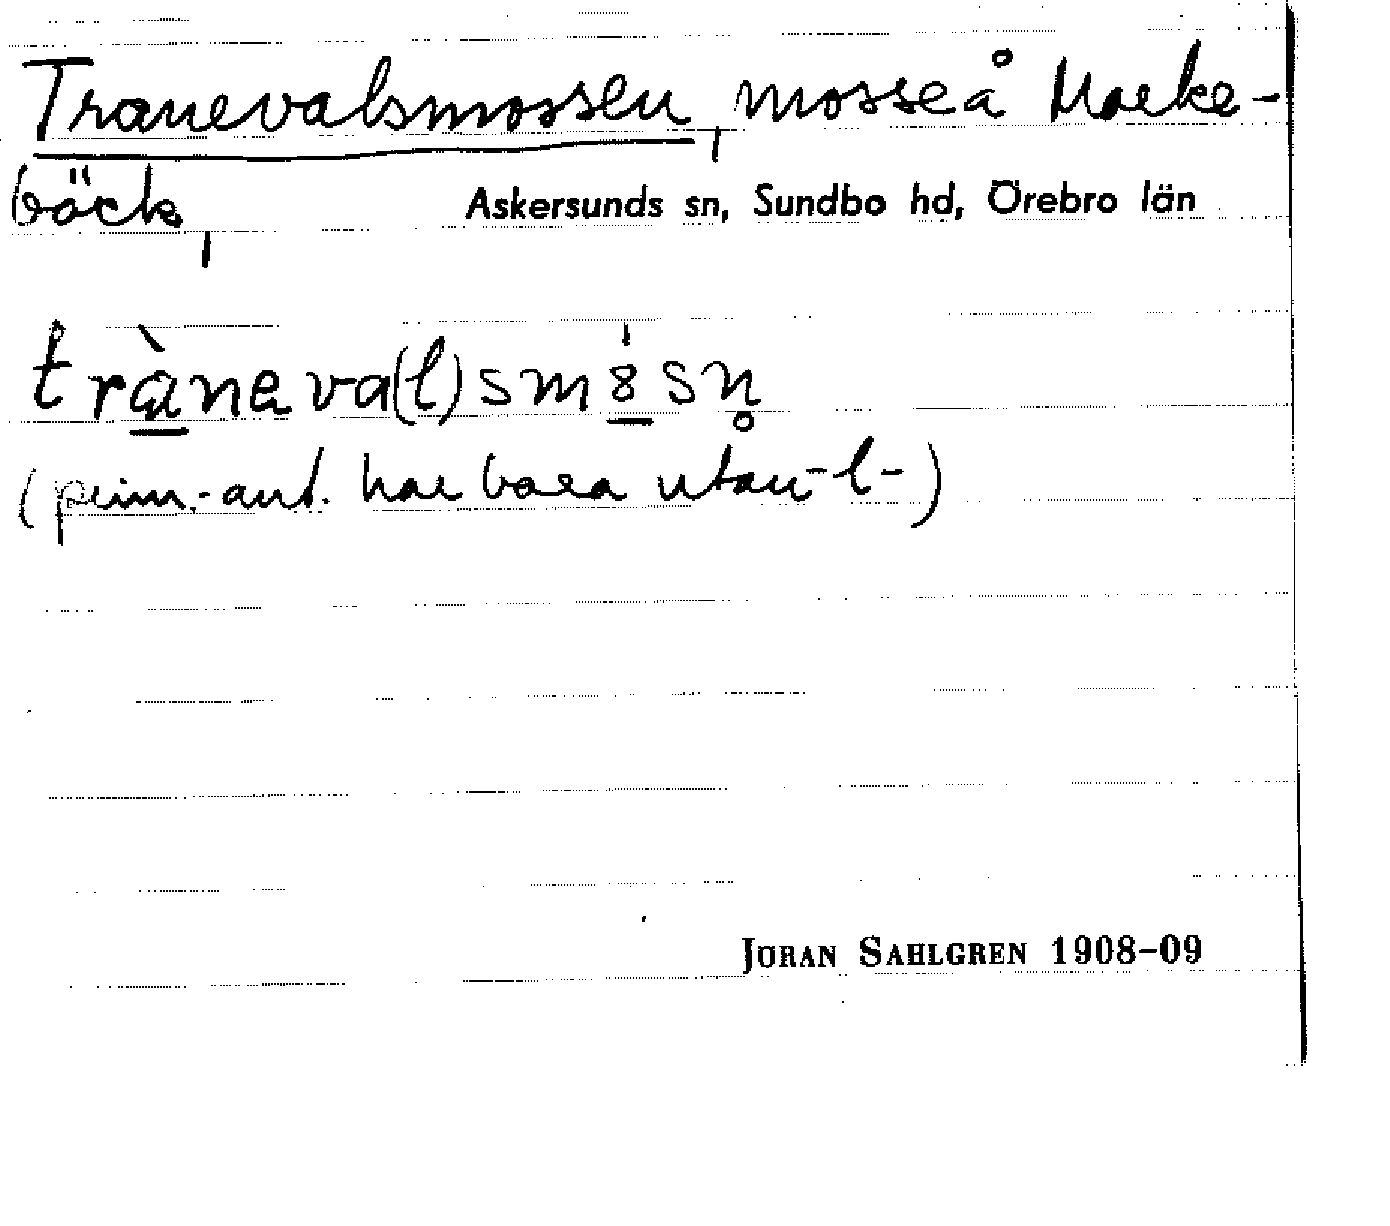 Tranevalsmossen, mosse å Marke-
bäck,
Askersunds sn, Sundbo hd, Örebro län
tràneva(l)smȣsn̥
(prim.-ant. har bara utan -l-)
JÖRAN SAHLGREN 1908-09